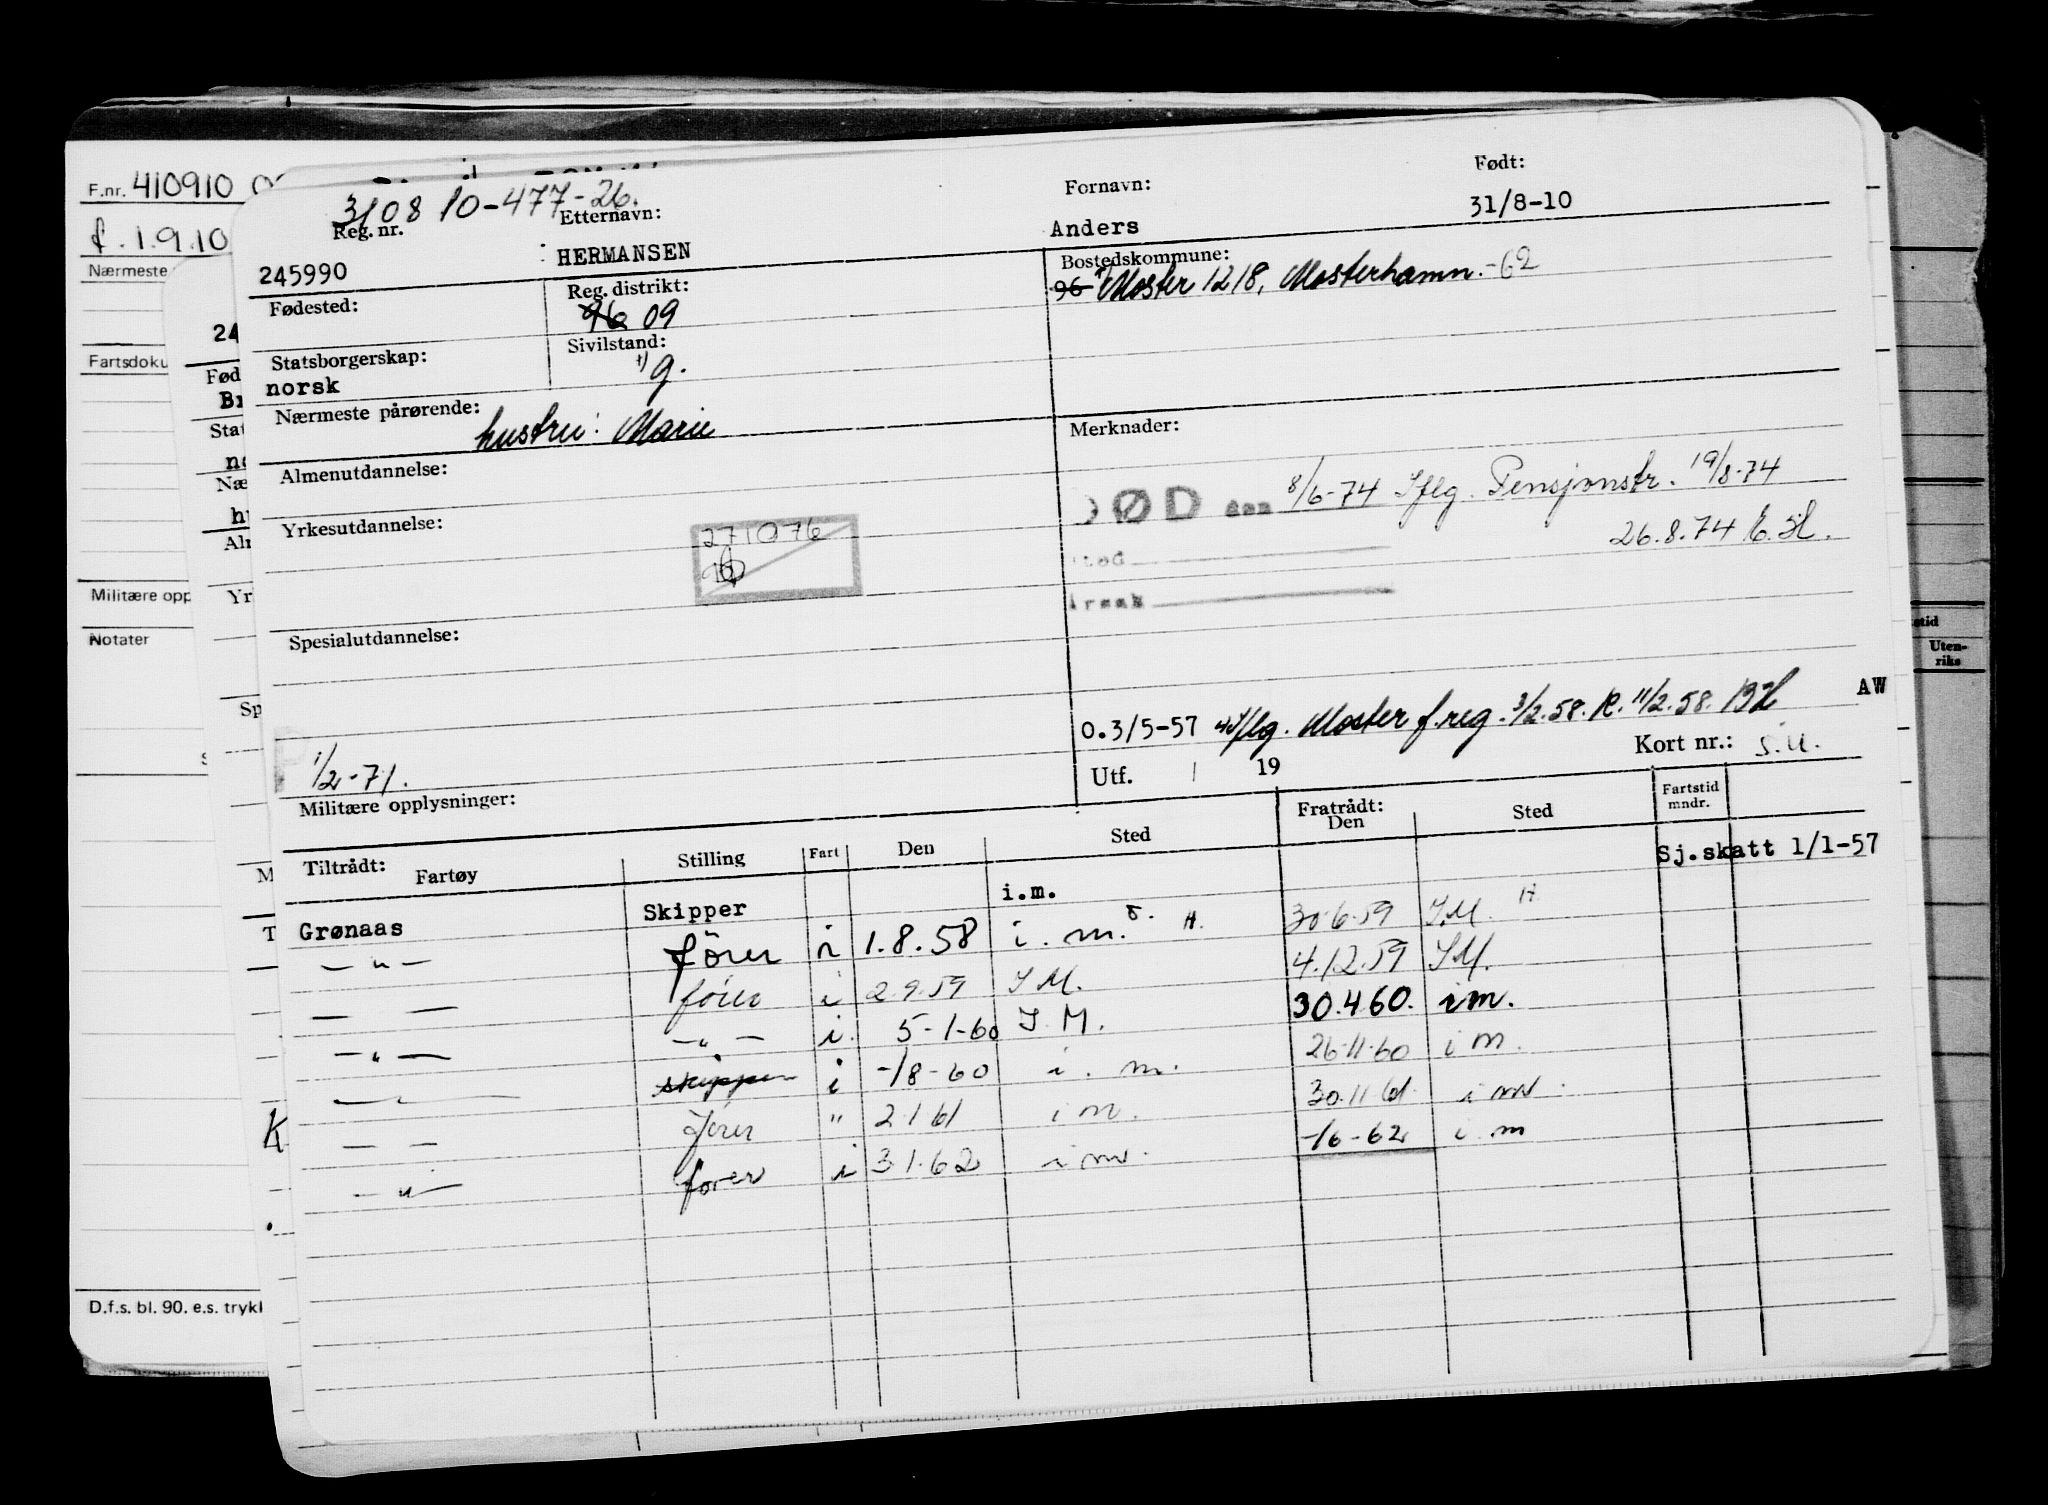 F.nr. 410910
f. 1.9.10
Nærmeste
Fartsdoku
Militære opp
Notater
D.f.s. bl. 90. e.s. trykk
24
Fød
Br
Stat
no
Næ
hu
Alm
Yr
Sp
M
T
K
310810-477-26.
Reg. nr. Etternavn: Fornavn: Født:
245990 HERMANSEN Anders 31/8-10
Fødested: Reg. distrikt: Bostedskommune:
96 09 96 1) Moster 1218, Mosterhamn.-62
Statsborgerskap: Sivilstand:
norsk 1) g.
Nærmeste pårørende: hustru: Marie
Merknader:
Almenutdannelse:
ØD den 8/6-74 Iflg. Pensjonstr. 19/8-74
26.8.74
Yrkesutdannelse:
271076
Spesialutdannelse:
0.3/5-57 1) Iflg. Moster f.reg. 3/2.58. R. 11/2.58. AW
1/2-71.
Utf. 19 Kort nr.: S.U.
Militære opplysninger:
Tiltrådt: Fartøy Stilling Fart Den Sted Fratrådt: Den Sted Fartstid mndr.
Sj.skatt 1/1-57
Grønaas Skipper i.m.
— " — fører i 1.8.58 i.m. H. 30.6.59 I.M. H
— — fører i 2.9.59 I M. 4.12.59 I.M.
— " — — " — i. 5-1-60 I.M. 30.4.60. im.
— — skipper i -/8-60 i.m. 26.11.60 i m.
— — fører " 2.1.61 i m. 30.11.61 i m.
— " — fører i 3.1.62 i m. -/6-62 i.m
stid
Uten-
riks